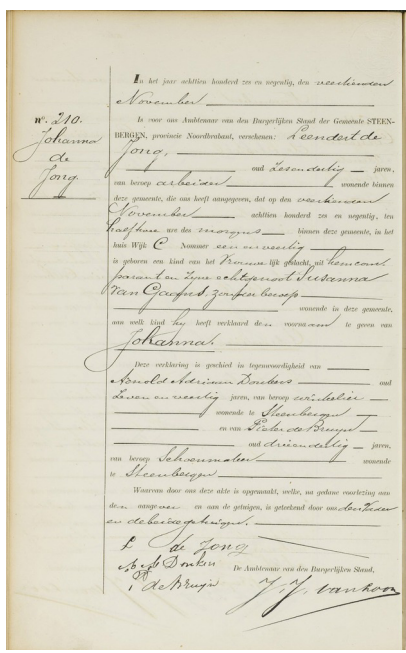 nº. 210.
Johanna
de
Jong.
In het jaar achttien honderd zes en negentig, den veertienden
November
Is voor ons Ambtenaar van den Burgerlijken Stand der Gemeente STEEN-
BERGEN, provincie Noordbrabant, verschenen: Leendert de
Jong,
oud zesendertig jaren,
van beroep arbeider wonende binnen
deze gemeente, die ons heeft aangegeven, dat op den veertienden
November achttien honderd zes en negentig, ten
half ure des morgens binnen deze gemeente, in het
huis Wijk C Nommer een en veertig
is geboren een kind van het Vrouwelijk geslacht, uit hem com
parant en zijne echtgenoot Susanna
van zonder beroep
wonende in deze gemeente,
aan welk kind hij heeft verklaard den voornaam te geven van
Johanna.
Deze verklaring is geschied in tegenwoordigheid van
Arnold Adriaan Donkers oud
zeven en veertig jaren, van beroep winkelier
wonende te Steenbergen
en van Pieter de Bruijn
oud drieendertig jaren,
van beroep Schoenmaker wonende
te Steenbergen
Waarvan door ons deze akte is opgemaakt, welke, na gedane voorlezing aan
den aangever en aan de getuigen, is geteekend door ons den Vader
en de beide getuigen.
L de Jong
A A Donkers
De Ambtenaar van den Burgerlijken Stand,
P de Bruijn
J. J. van